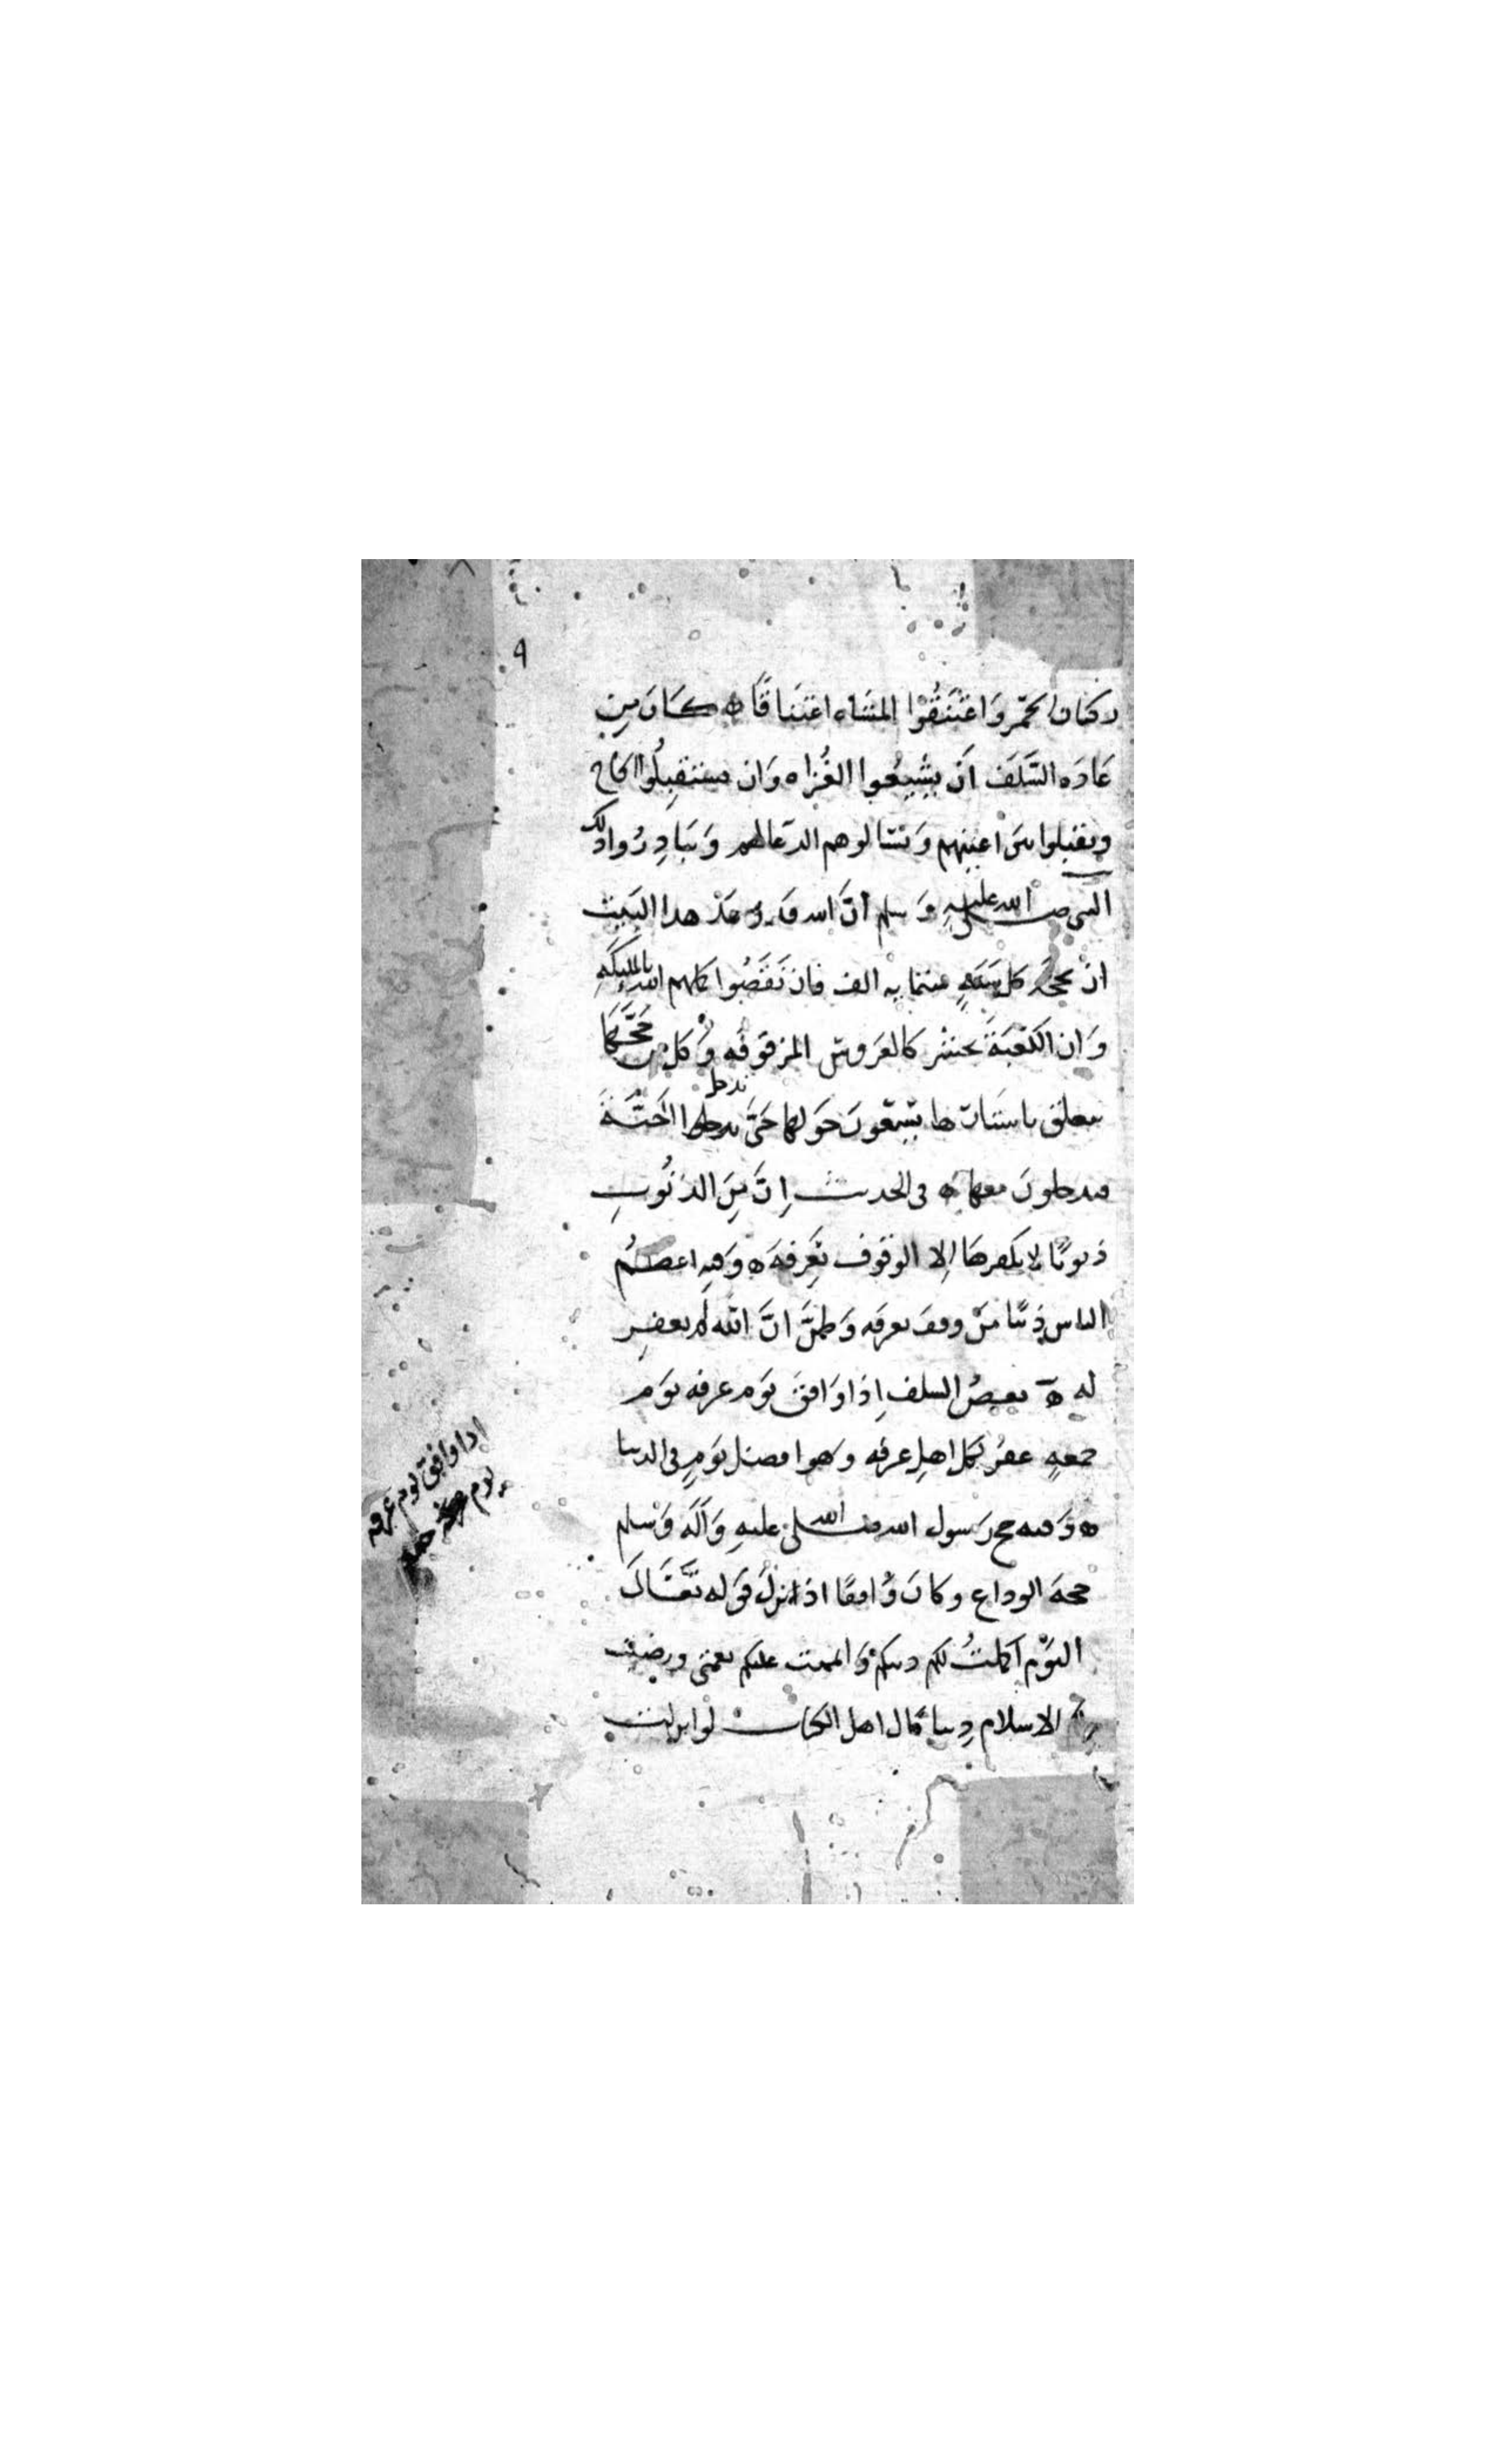 ٩
ركبان الحمر وَاعْتَنَقُوا المشَاه اعْتنَاقًا ه كَانَ مِن
عَادَه السَّلَف اَن يشَيِّعُوا الغُزاه وَان يستقبِلُوا الحاج
ويقبلوا بين اعينهم وَيسَالوهم الدعَا لهم وَيبَادِرُوا ذلك
النبي صلى الله عليهِ وَسلم اَنَّ الله قد وعَدَ هدا البَيت
ان يحجه كل سَنَهٍ ستمايه الف فان نَقَصُوا كملهم الله بالمليكه
وَان الكَعْبَةَ تحشر كالعَروس المزفوفه وَكل من حَجَّهَا
يتعلق باستَارها يسْعَونَ حَولهَا حَتَّى تدخل الجَنَّةَ
تدخل
فيدخلونَ معها ه في الحديث اِنَّ مِنَ الذنُوبِ
ذنوبًا لا يكفرهَا إلا الوقوف بعَرفَه ه وَفيه اعظمُ
الناس ذنبًا مَنْ وقف بعرفَه وَظنَّ انَّ الله لم يغفر
له ه بعضُ السلف اِذَا وَافق يَوم عرفه يَوم
جمعهٍ غفرُ لكل اهلِ عرفه وهو افضل يَومٍ في الدنيا
ه وَفيه حج رَسول الله صلى الله عليهِ وَآله وَسلم
حجةَ الوداع وكانَ وَاقفًا اذ انزلَ قوله تَعَالَى
اليَوم اكملتُ لكم دينكم وَاتممت عليكم نعمتي ورضيت
الاسلام دِينا قال اهل الكتاب لو انزلت
اذا وافق يوم عرفه
يوم جمعه